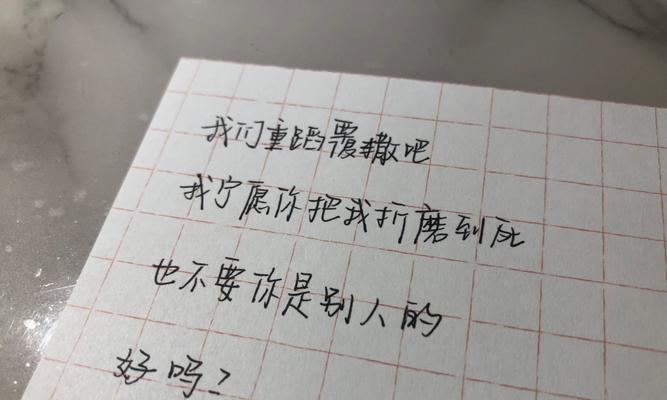 我们重蹈覆撒吧
我宁愿你把我折磨到死
也不要你是别人的
好吗?